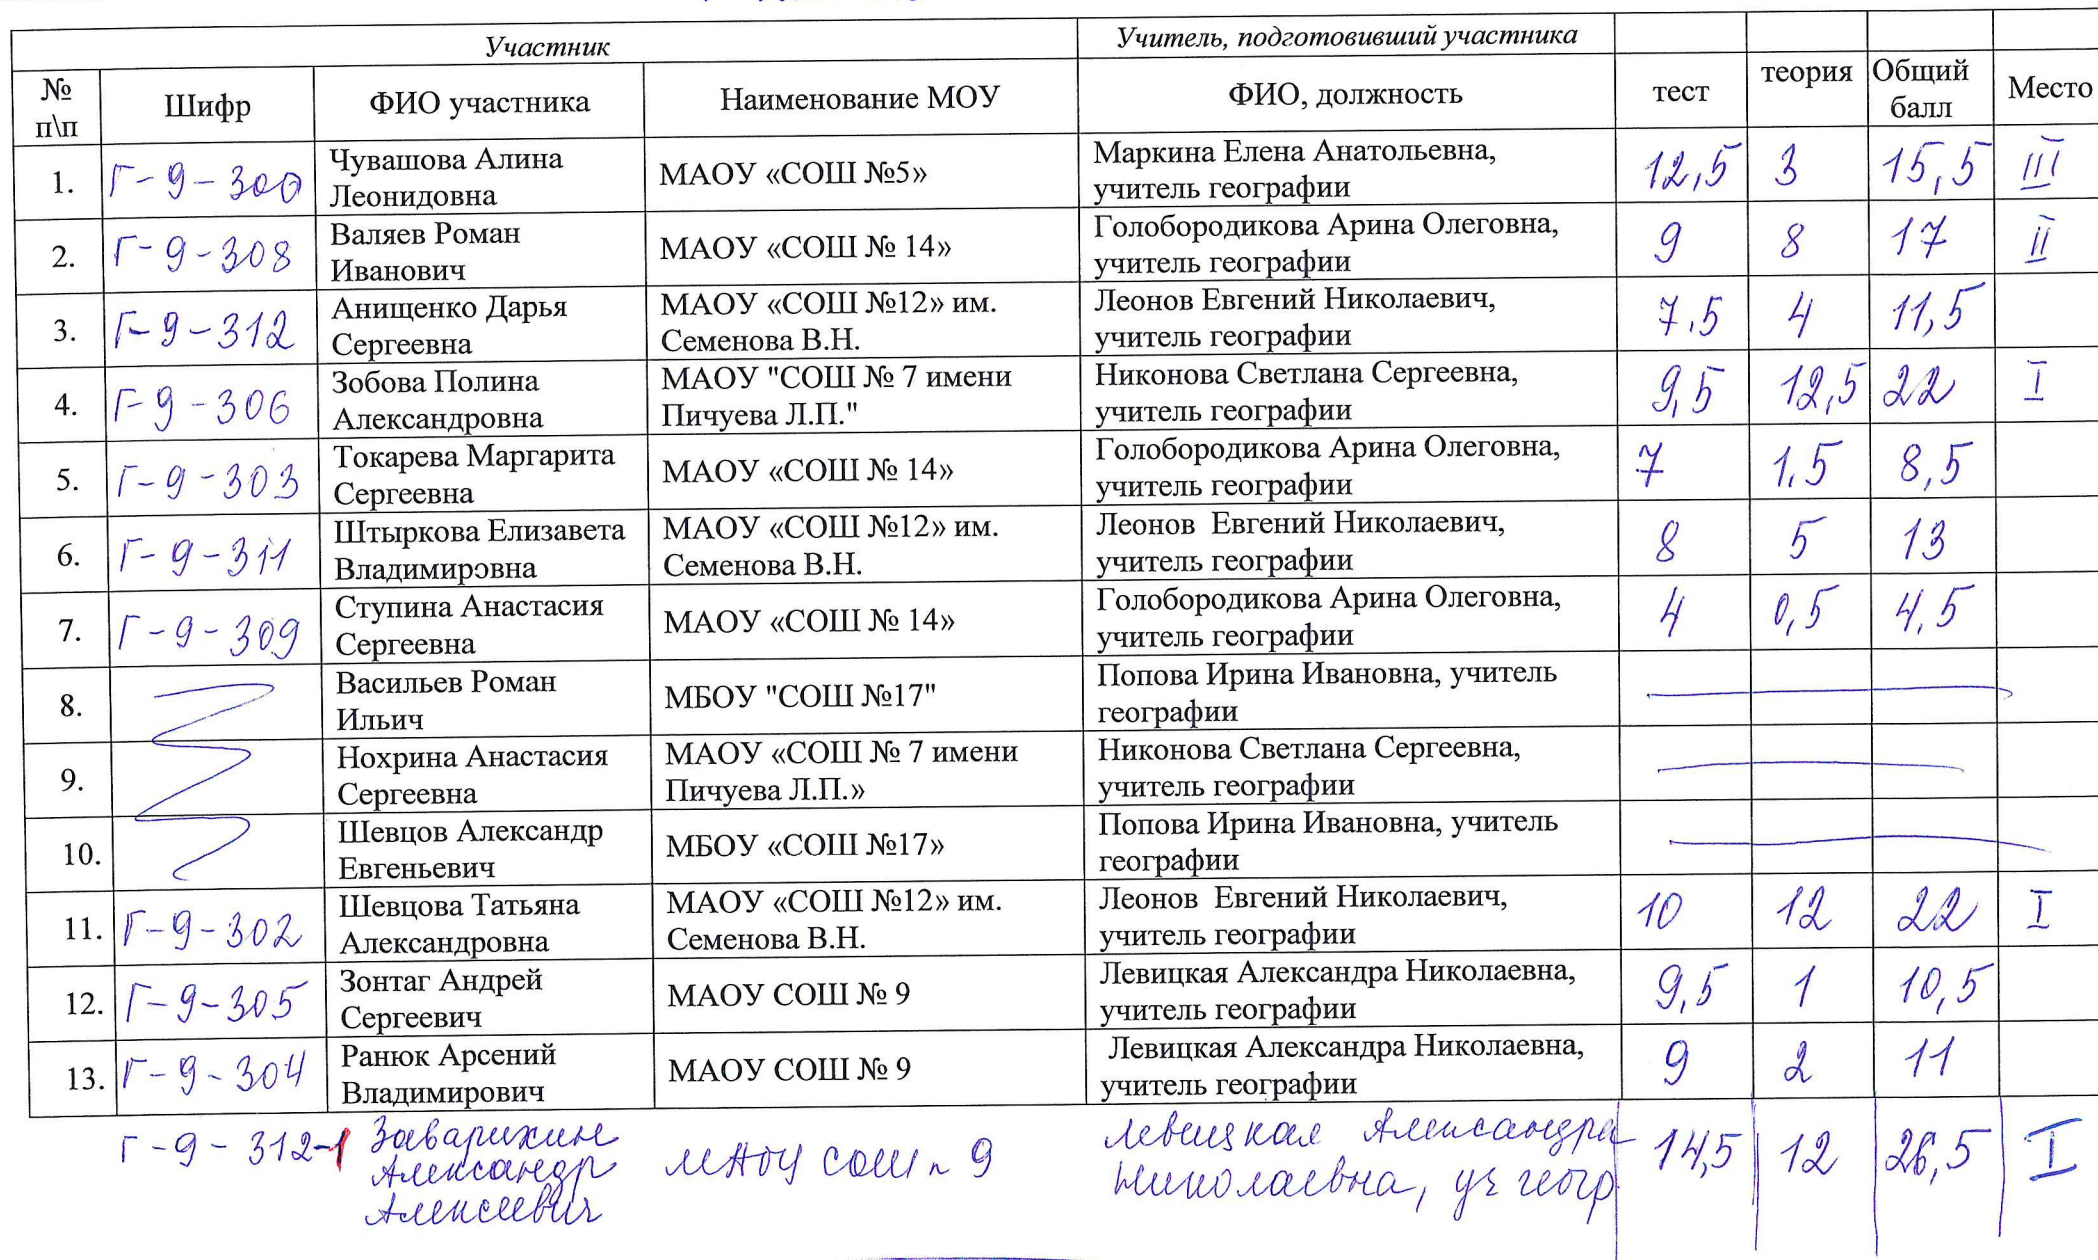 Участник Учитель, подготовивший участника
№ п\п Шифр ФИО участника Наименование МОУ ФИО, должность тест теория Общий балл Место
1. Г-9-300 Чувашова Алина Леонидовна МАОУ «СОШ №5» Маркина Елена Анатольевна, учитель географии 12,5 3 15,5 III
2. Г-9-308 Валяев Роман Иванович МАОУ «СОШ № 14» Голобородикова Арина Олеговна, учитель географии 9 8 17 II
3. Г-9-312 Анищенко Дарья Сергеевна МАОУ «СОШ №12» им. Семенова В.Н. Леонов Евгений Николаевич, учитель географии 7.5 4 11,5
4. Г-9-306 Зобова Полина Александровна МАОУ "СОШ № 7 имени Пичуева Л.П." Никонова Светлана Сергеевна, учитель географии 9,5 12,5 22 I
5. Г-9-303 Токарева Маргарита Сергеевна МАОУ «СОШ № 14» Голобородикова Арина Олеговна, учитель географии 7 1.5 8,5
6. Г-9-311 Штыркова Елизавета Владимировна МАОУ «СОШ №12» им. Семенова В.Н. Леонов Евгений Николаевич, учитель географии 8 5 13
7. Г-9-309 Ступина Анастасия Сергеевна МАОУ «СОШ № 14» Голобородикова Арина Олеговна, учитель географии 4 0,5 4,5
8. Васильев Роман Ильич МБОУ "СОШ №17" Попова Ирина Ивановна, учитель географии
9. Нохрина Анастасия Сергеевна МАОУ «СОШ № 7 имени Пичуева Л.П.» Никонова Светлана Сергеевна, учитель географии
10. Шевцов Александр Евгеньевич МБОУ «СОШ №17» Попова Ирина Ивановна, учитель географии
11. Г-9-302 Шевцова Татьяна Александровна МАОУ «СОШ №12» им. Семенова В.Н. Леонов Евгений Николаевич, учитель географии 10 12 22 I
12. Г-9-305 Зонтаг Андрей Сергеевич МАОУ СОШ № 9 Левицкая Александра Николаевна, учитель географии 9,5 1 10,5
13. Г-9-304 Ранюк Арсений Владимирович МАОУ СОШ № 9 Левицкая Александра Николаевна, учитель географии 9 2 11
Г-9-312-1 Заварихин Александр Алексеевич МАОУ СОШ № 9 Левицкая Александра Николаевна, уч геогр 14,5 12 26,5 I